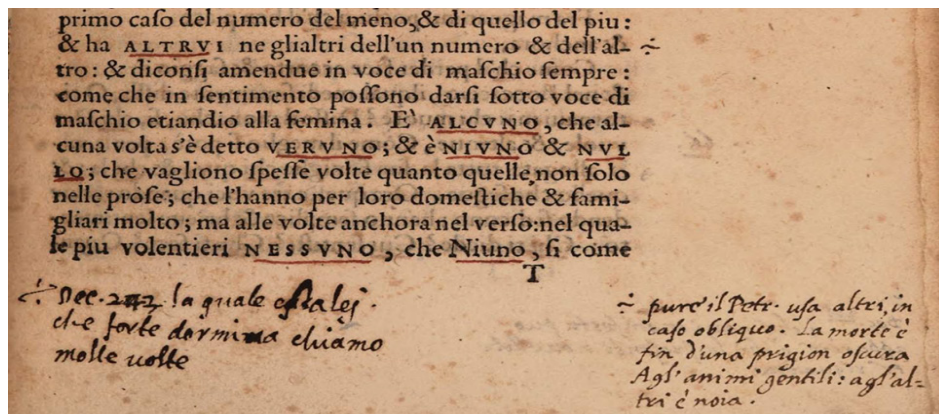 primo caſo del numero del meno, & di quello del piu:
& ha ALTRVI ne glialtri dell'un numero & dell'al-
tro: & diconſi amendue in voce di maſchio ſempre:
come che in ſentimento poſſono darſi ſotto voce di
maſchio etiandio alla femina. E' ALCVNO, che al-
cuna volta s'è detto VERVNO; & è NIVNO & NVL
LO; che vagliono ſpeſſe volte quanto quelle, non ſolo
nelle proſe; che l'hanno per loro domeſtiche & fami-
gliari molto; ma alle volte anchora nel verſo: nel qua-
le piu volentieri NESSVNO, che Niuno, ſi come
T
÷ Dec. la quale
che forte dormina chiamo
molte volte
÷ pure il Petr. usa altri, in
caso obliquo. La morte è
fin d'una prigion oscura
Agl' animi gentili: agl'al-
tri è noia.